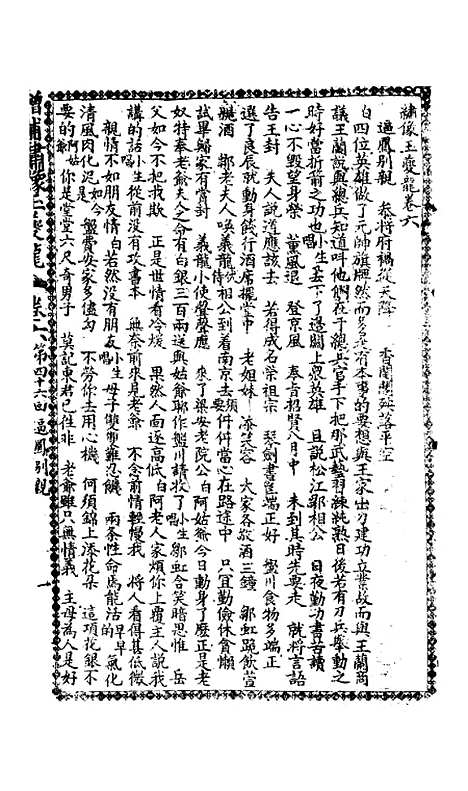 繡像王夔龍卷六
逼鳳別親　恭將府禍從天降　香蘭思𢙣落平空
白四位英雄做了元帥旗牌然而多是有本事的要想與王家出力建功立業故而與王蘭商
議王蘭說與總兵知道叫他們在于總兵官手下把那武藝習練純熟日後若有刀兵舉動之
時好當折箭之功也唱小生丟下了邊關上衆英雄　且說松江鄒相公　日夜勤功書苦讀
一心不毀望身榮　董風退　登京風　奉旨招賢八月中　未到其時先要走　就將言語
告王封　夫人說道應該去　若得成名榮祖宗　琴劍書匣端正好　盤川食物多端正
選了良辰就動身餞行酒席擺堂中　老姐妹　添笑容　大家各敬酒三鐘　鄒虹跪飲萱
親酒　鄒老夫人喚義龍伏侍相公到着南京去須要件件當心在路途中　只宜勤儉休貪懶
試畢歸家有賞封　義龍小使聲聲應　來了梁安老院公白阿姑爺今日動身了麼正是老
奴特奉老爺夫人之命有白銀三百兩送與姑爺聊作盤川請收了小生鄒虹含笑暗思惟　岳
父如今不把我欺　正是世情看冷煖　果然人面逐高低白阿老人家煩你上覆主人說我
講的話唱小生從前沒有攻書本　無奈前來見老爺　不念前情輕慢我　將人看得甚低微
親情不如朋友情白若然沒有朋友唱小生母子雙雙難忍饑　兩条性命爲龍活的早早氣化
清風肉化泥白是如今　盤費安家多儘勾　不勞你去用心機　何須錦上添花朵　這項花銀不
要的白阿姑爺你是堂堂六尺奇男子　莫記東君已往非　老爺雖只無情義　主母爲人是好
增補繡像王夔龍　卷六　第四十六回　逼鳳別親　一